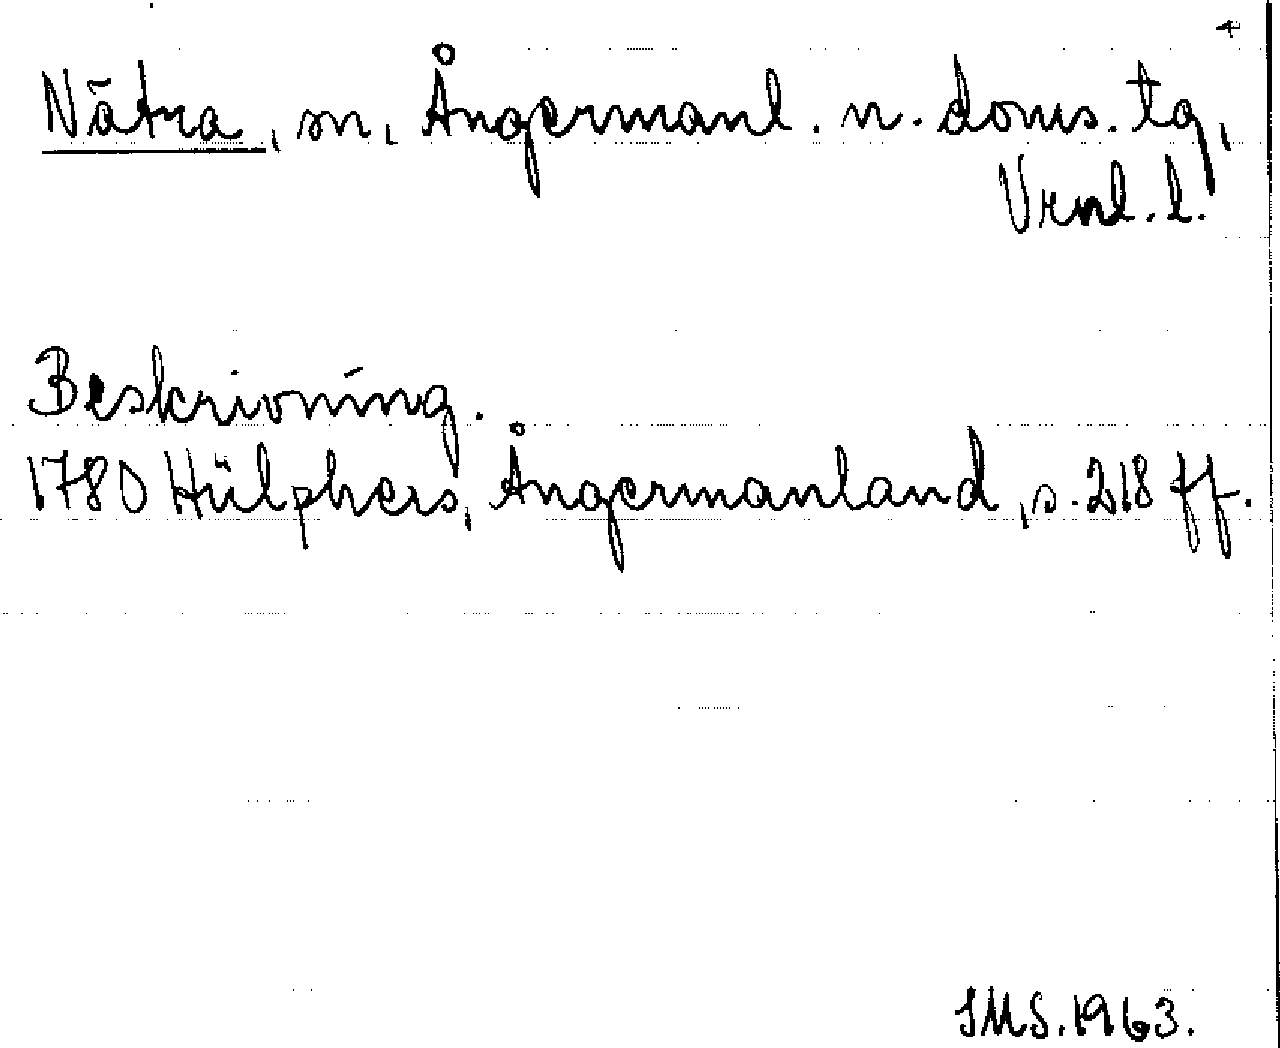 4
Nätra, sn, Ångermanl. n. doms. tg,
Vrnl. l.
Beskrivning.
1780 Hülphers, Ångermanland, s. 218 ff.
SMS. 1963.